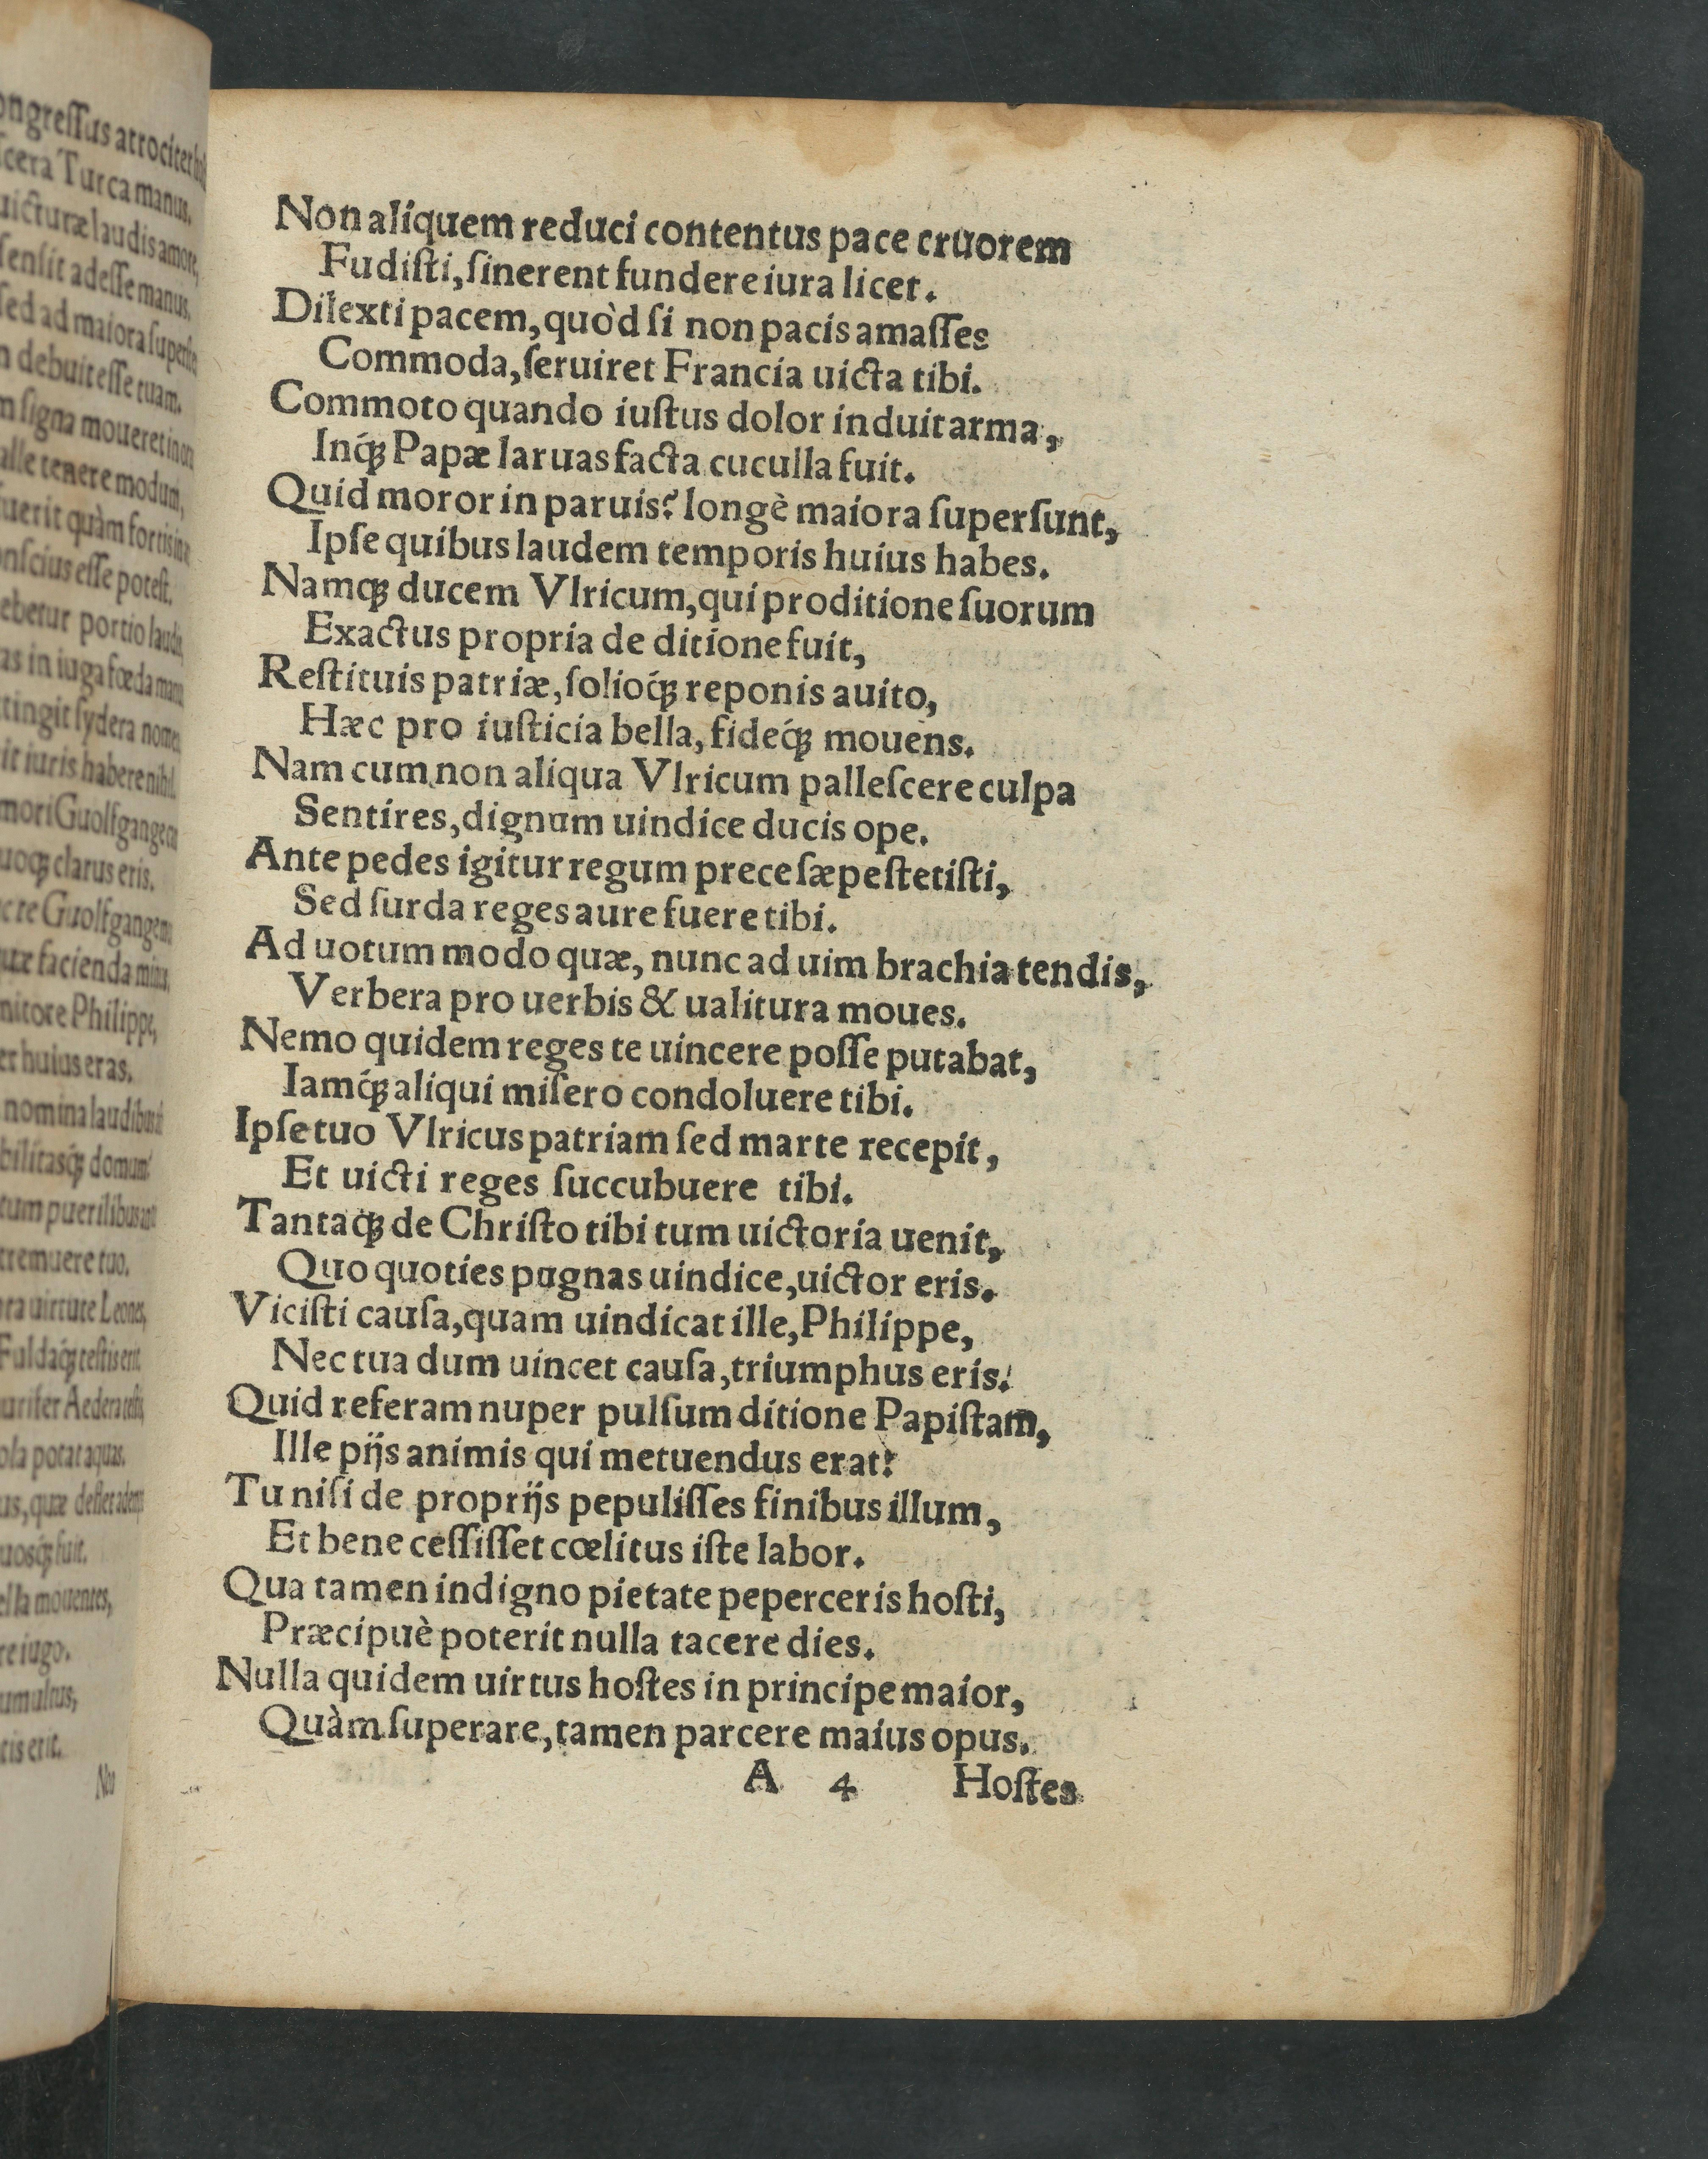 ongreſſus atrociter
cera Turca manus.
uicturæ laudis amore,
ſenſit adeſſe manus.
ſed ad maiora
n debuit eſſe tuam.
m ſigna moueret in
alle tenere modum,
fuerit quàm fortis
onſcius eſſe poteſt.
ebetur portio
as in iuga fœda
ttingit ſydera
it iuris habere nihil.
mori
uoqꝫ clarus eris.
uæ facienda
nitore Philippe,
er huius eras.
nomina
bilitasqꝫ́ domum
tum puerilibus
tremuere tuo.
ara uirtute Leones,
Fuldaqꝫ́ teſtis erit
urifer Aedera
ola potat aquas.
us, quæ deflet
uosqꝫ́ fuit.
ella mouentes,
re iugo.
umultus,
tis erit.
Non aliquem reduci contentus pace cruorem
Fudiſti, ſinerent fundere iura licet.
Dilexti pacem, quòd ſi non pacis amaſſes
Commoda, ſeruiret Francia uicta tibi.
Commoto quando iuſtus dolor induit arma,
Inqꝫ́ Papæ laruas facta cuculla fuit.
Quid moror in paruis? longè maiora ſuperſunt,
Ipſe quibus laudem temporis huius habes.
Namqꝫ ducem Vlricum, qui proditione ſuorum
Exactus propria de ditione fuit,
Reſtituis patriæ, ſolioqꝫ́ reponis auito,
Hæc pro iuſticia bella, fideqꝫ́ mouens.
Nam cum non aliqua Vlricum palleſcere culpa
Sentires, dignum uindice ducis ope.
Ante pedes igitur regum prece ſæpe ſtetiſti,
Sed ſurda reges aure fuere tibi.
Ad uotum modo quæ, nunc ad uim brachia tendis,
Verbera pro uerbis & ualitura moues.
Nemo quidem reges te uincere poſſe putabat,
Iamqꝫ́ aliqui miſero condoluere tibi.
Ipſe tuo Vlricus patriam ſed marte recepit,
Et uicti reges ſuccubuere tibi.
Tantaqꝫ́ de Chriſto tibi tum uictoria uenit,
Quo quoties pugnas uindice, uictor eris.
Viciſti cauſa, quam uindicat ille, Philippe,
Nec tua dum uincet cauſa, triumphus eris.
Quid referam nuper pulſum ditione Papiſtam,
Ille pijs animis qui metuendus erat?
Tu niſi de proprijs pepuliſſes finibus illum,
Et bene ceſſiſſet cœlitus iſte labor.
Qua tamen indigno pietate peperceris hoſti,
Præcipuè poterit nulla tacere dies.
Nulla quidem uirtus hoſtes in principe maior,
Quàm ſuperare, tamen parcere maius opus.
A 4 Hoſtes